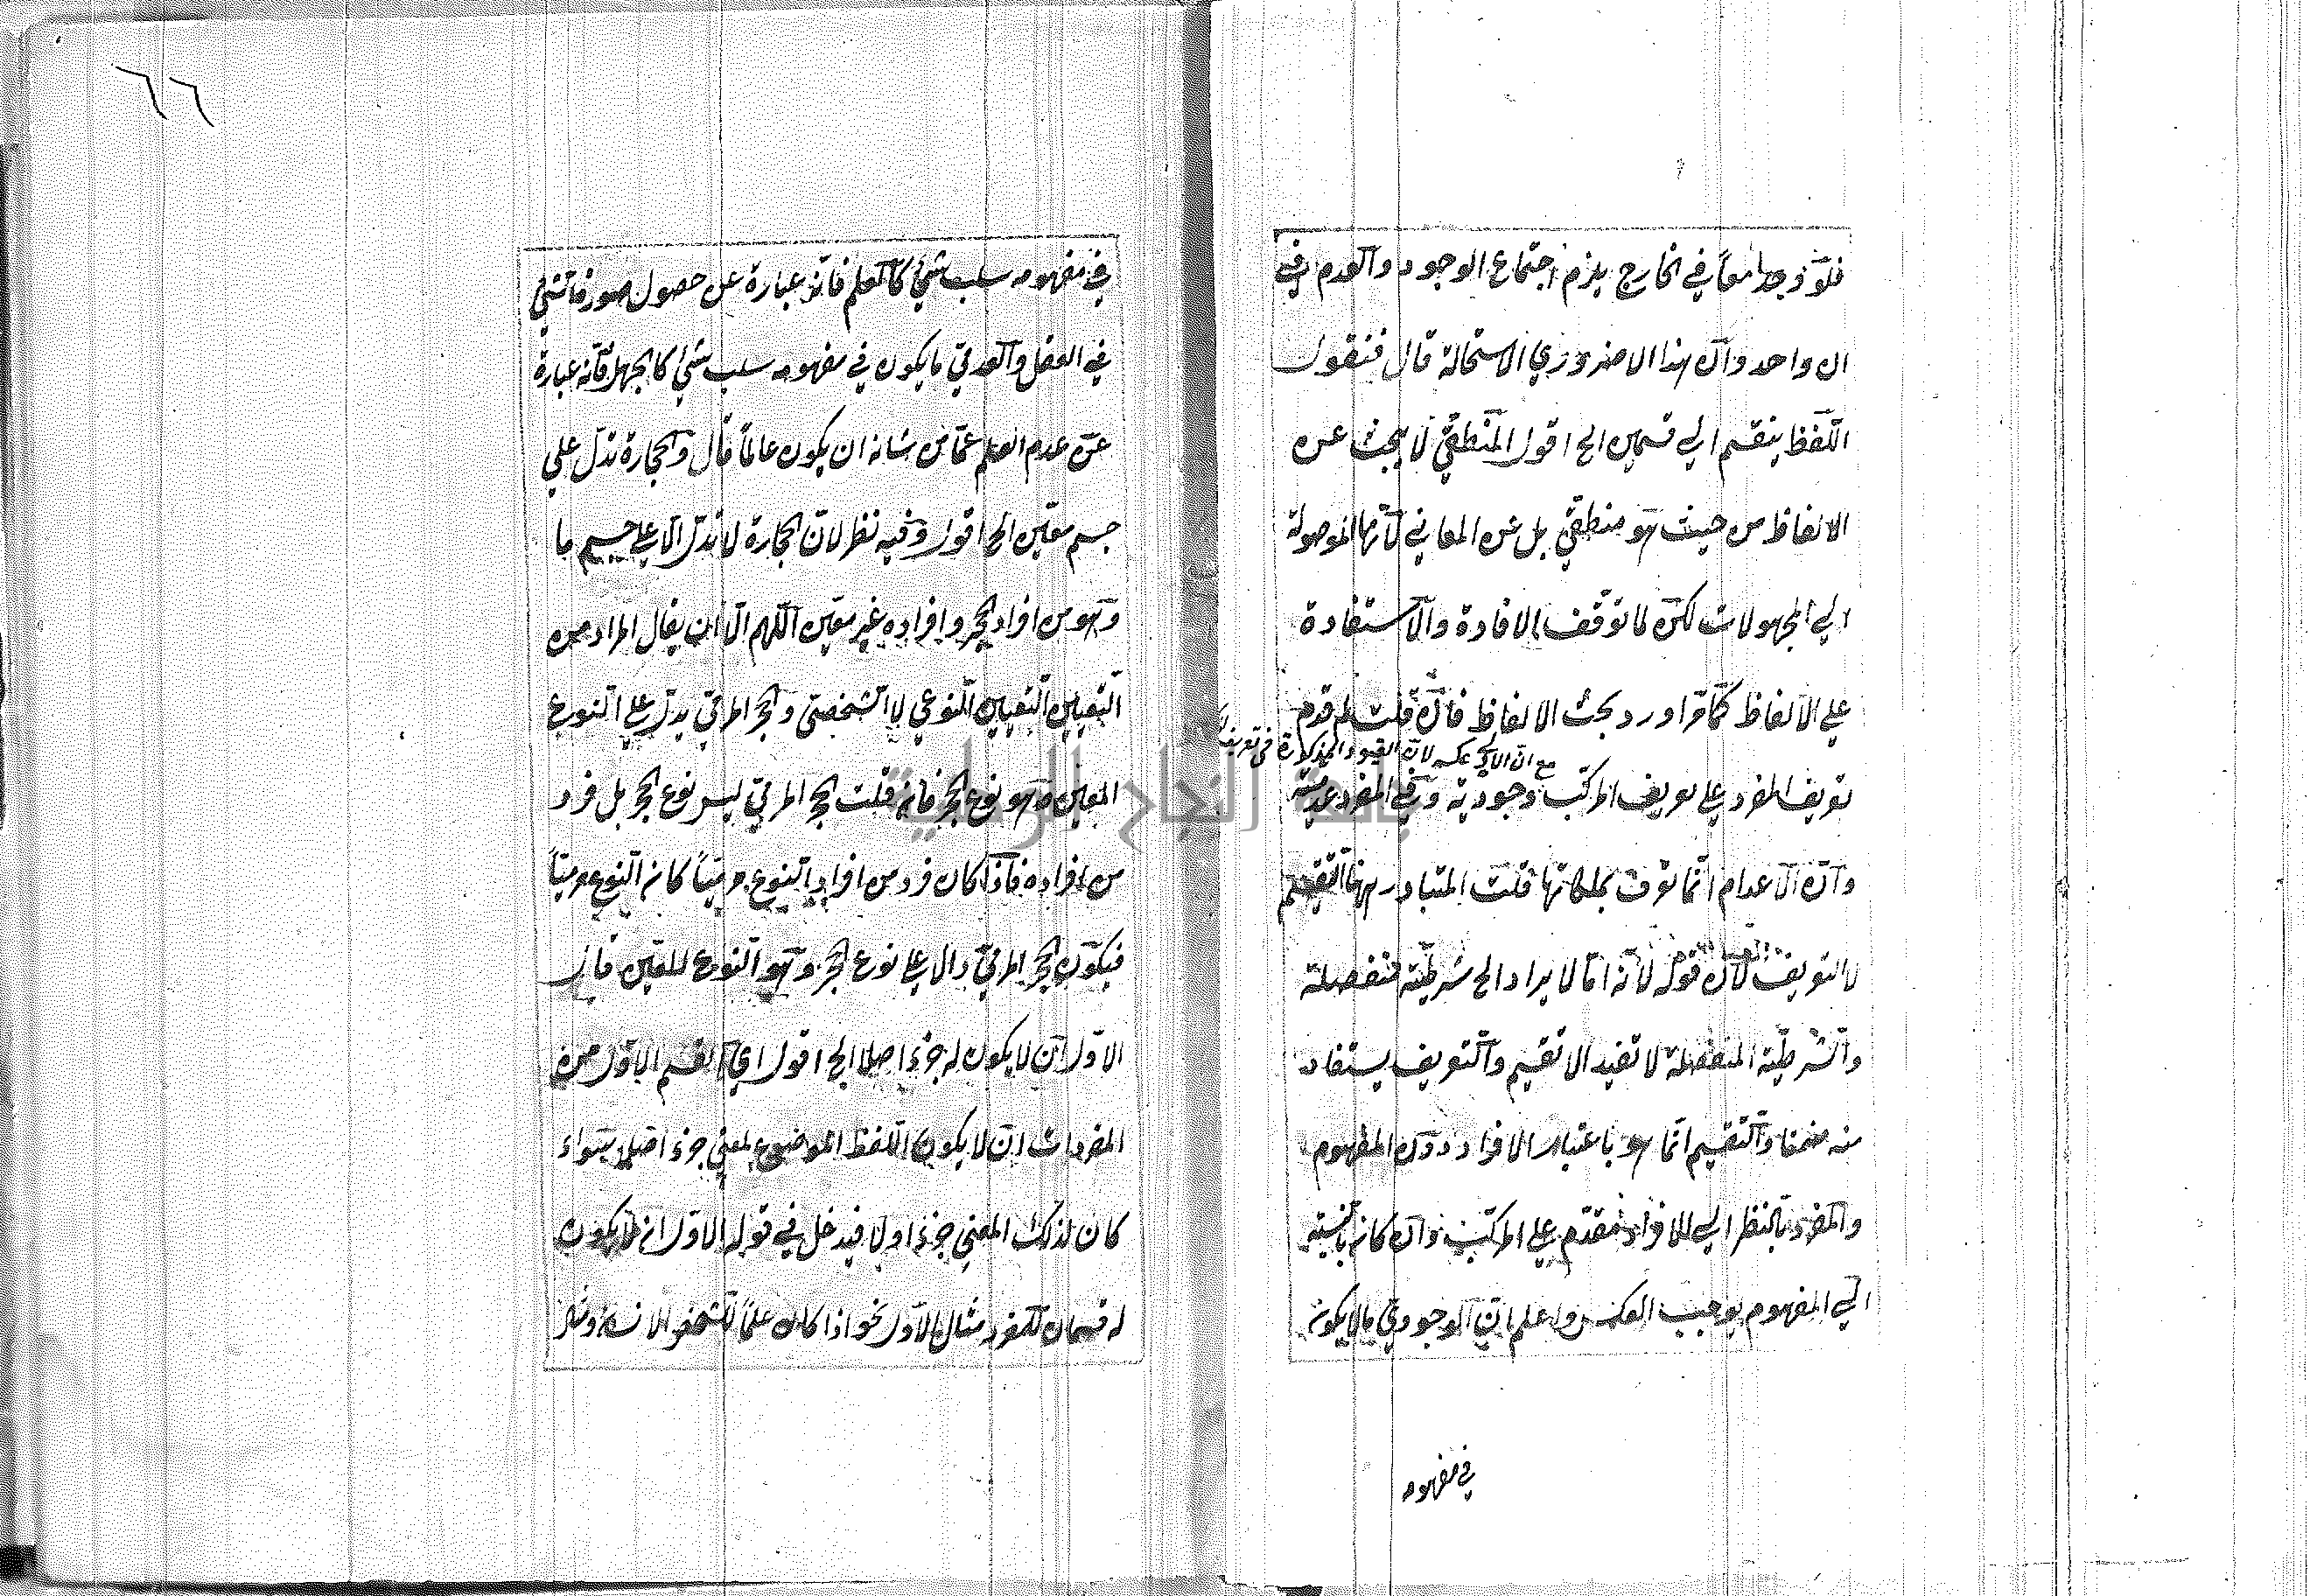 فلو وجدا معاً في الخارج يلزم اجتماع الوجود والعدم في
ان واحد وان هذا الا ضروري الاستحالة قال فنقول
اللفظ ينقسم الي قسمين الخ اقول المنطقي لا يبحث عن
الالفاظ من حيث هو منطقي بل عن المعاني لانها الموصلة
الي المجهولات لكن لما توقف الافادة والاستفادة
علي الالفاظ كما مر اورد بحث الالفاظ فان قلت لم قدم
مع ان الاولي عكسه لان القيود المذكورة في تعريف
تعريف المفرد علي تعريف المركب وجودية وفي المفرد عدمية
وان الاعدام انما تعرف بملكاتها قلت المتبادر ههنا التقسيم
لا التعريف لان قوله لانه اما لا يراد الخ شرطية منفصلة
والشرطية المنفصلة لا تفيد الا تقسيم والتعريف يستفاد
منه ضمنا والتقسيم انما هو باعتبار الافراد دون المفهوم
والمفرد بالنظر الي الافراد مقدم علي المركب وان كان بالنسبة
الي المفهوم يوجب العكس واعلم ان الوجودي ما لا يكون
في مفهومه
٦٦
في مفهومه سلب شئ كالعلم فانه عبارة عن حصول صورة شئ
في العقل والعدمي ما يكون في مفهومه سلب شئ كالجهل فانه عبارة
عن عدم العلم عما من شانه ان يكون عالماً قال والحجارة تدل علي
جسم معين الخ اقول وفيه نظر لان الحجارة لا تدل الا علي جسم ما
وهو من افراد الحجر وافراده غير معين اللهم الا ان يقال المراد من
التعيين التعيين النوعي لا الشخصي والحجر المرمي يدل علي النوع
المعين وهو نوع الحجر فان قلت الحجر المرمي ليس نوع الحجر بل فرد
من افراده فاذا كان فرد من افراد النوع مرمياً كان النوع مرمياً
فيكون الحجر المرمي دالا علي نوع الحجر وهو النوع المعين قال
الاول ان لا يكون له جزء اصلا الخ اقول اي القسم الاول من
المفردات ان لا يكون اللفظ الموضوع لمعني جزء اصلا سواء
كان لذلك المعني جزء او لا فيدخل في قوله الاول ان لا يكون
له قسمان للمفرد مثال الاول نحو اذا كان علماً لشخص الانسان ومثل